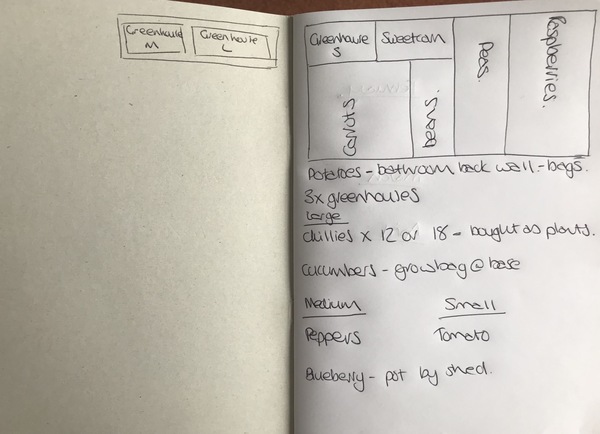 Greenhouse
M
Greenhouse
L
Greenhouse
S
Sweetcorn
Peas.
Raspberries.
Carrots
Swede.
Potatoes - bathroom back wall - bags.
3x greenhouses
Large
Chillies x 12 or 18 - bought as plants.
Cucumbers - growbag @ base
Medium
Small
Peppers
Tomato
Blueberry - pot by shed.